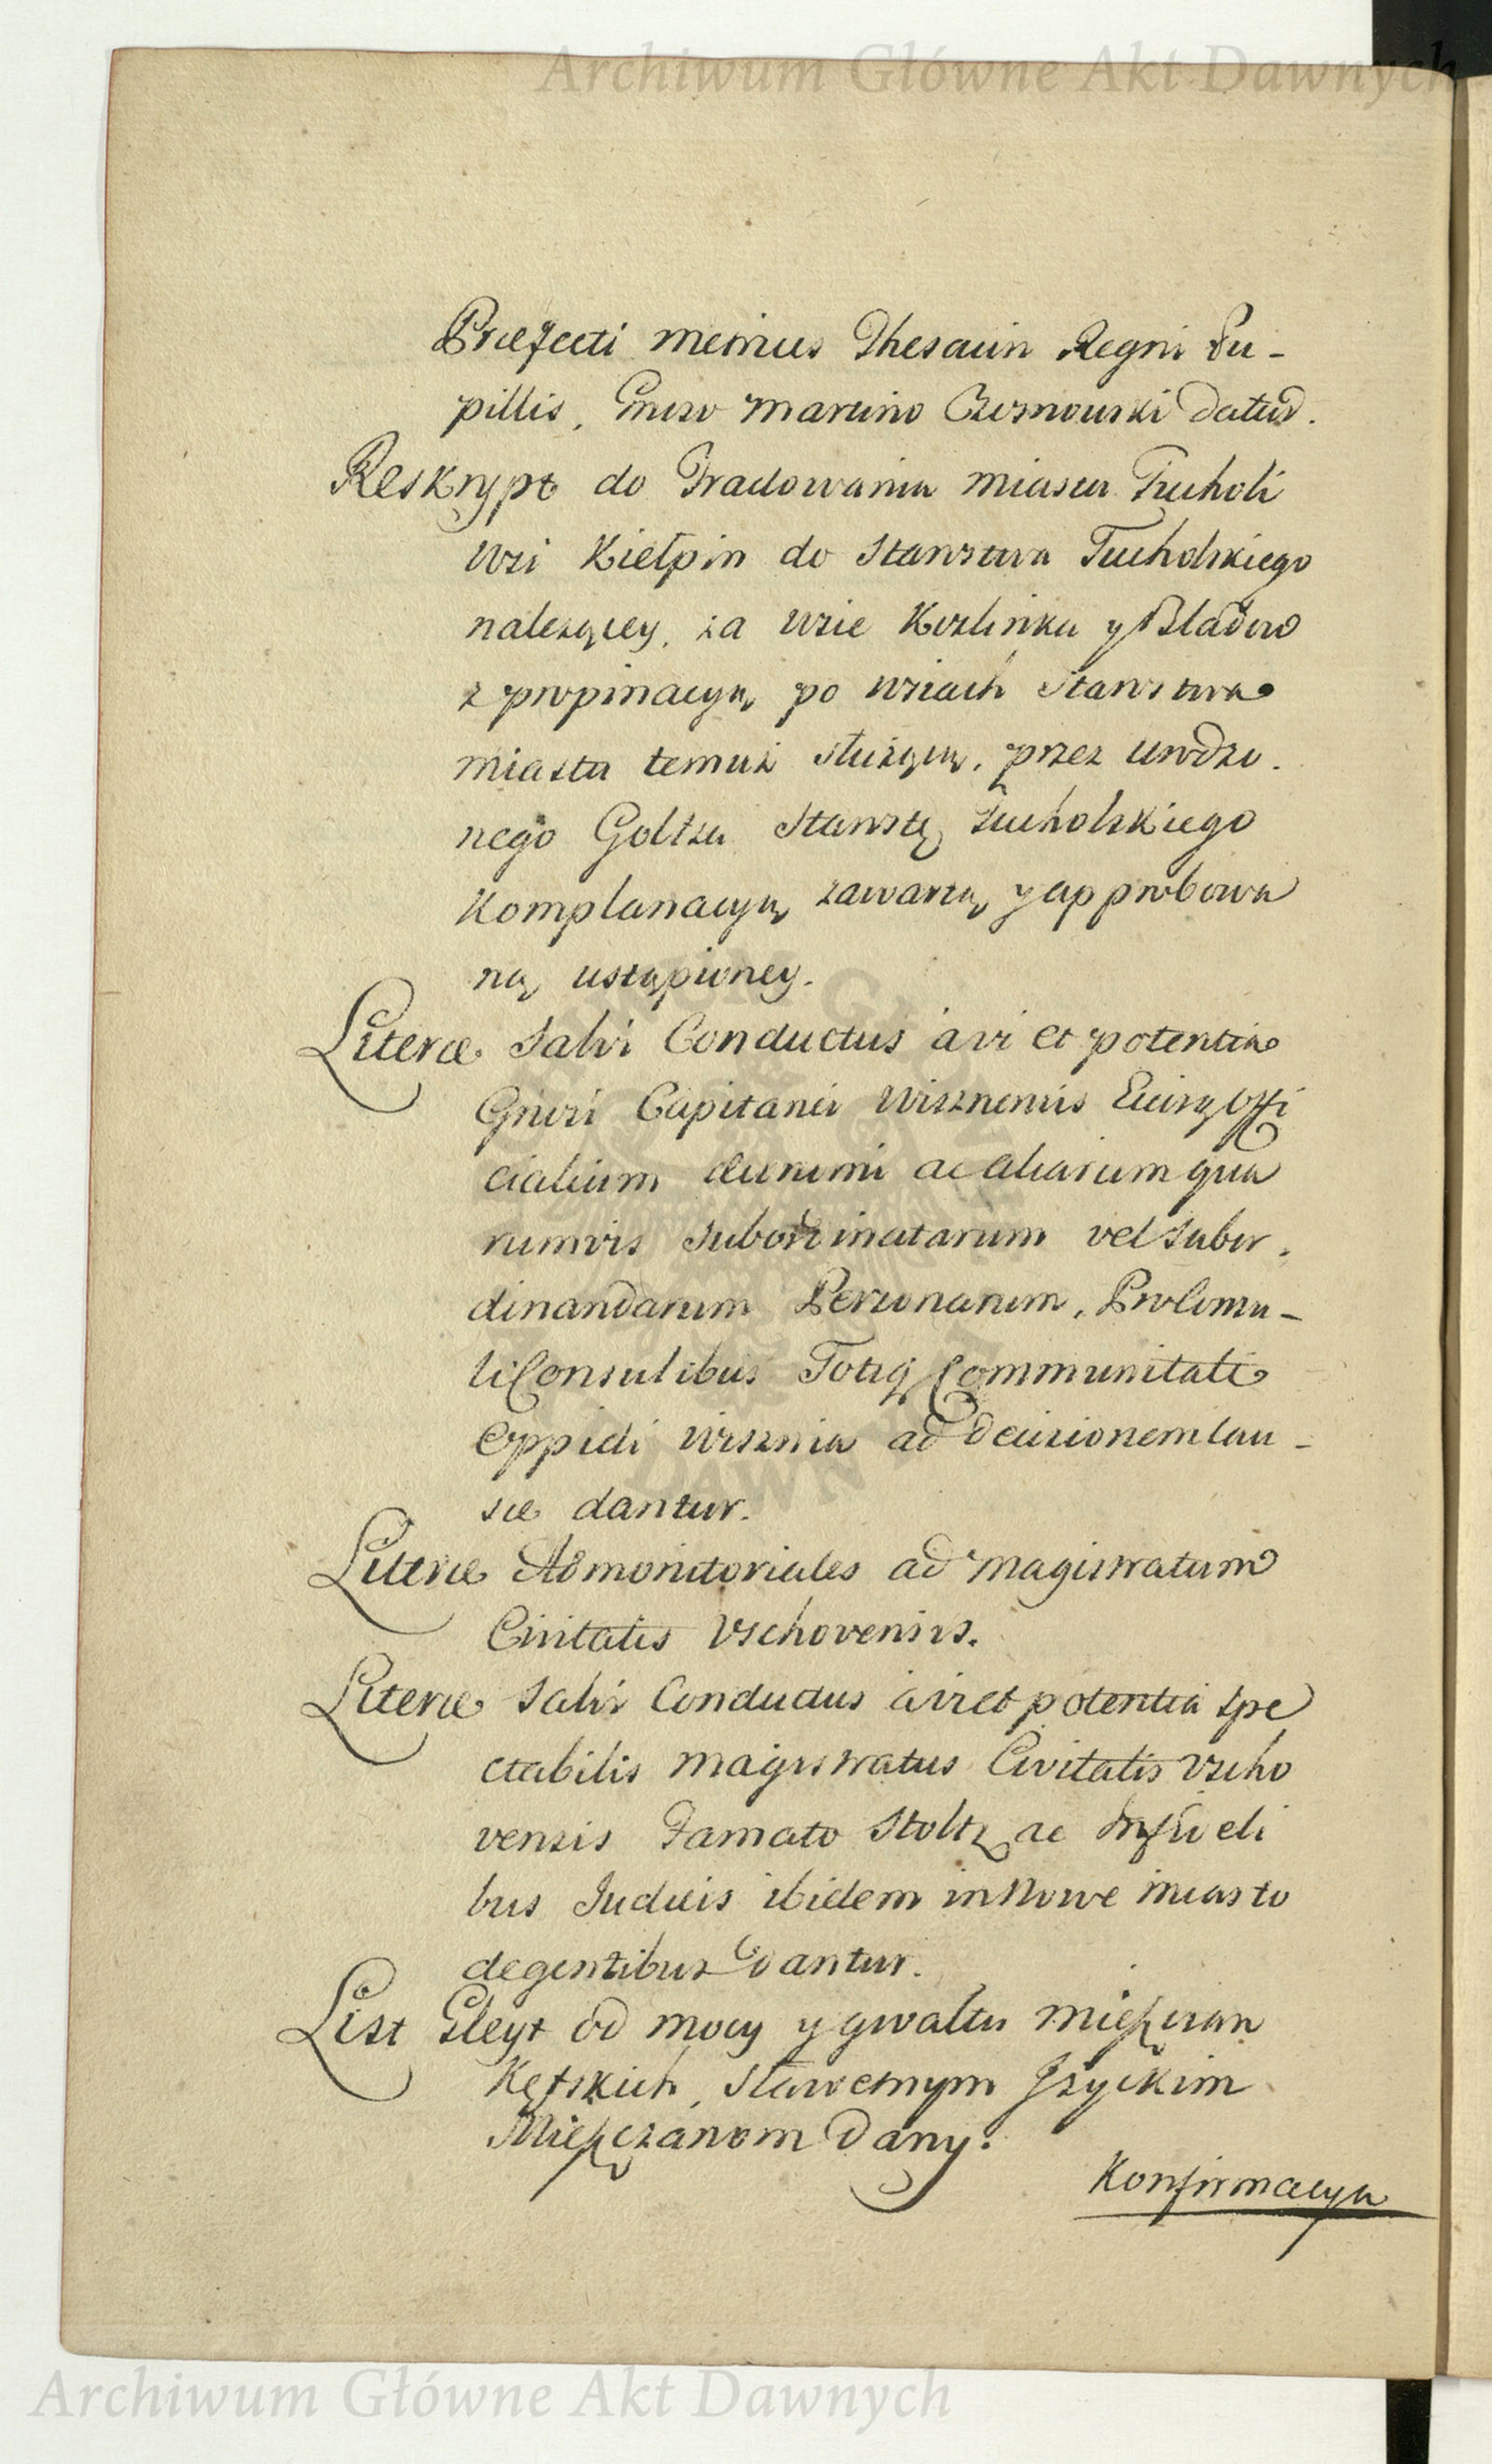 Archiwum Główne Akt Dawnych
Præfecti mennicæ Thesauri Regni Pu-
pillis, Gnero Martino Bzemowski datus.
Reskrypt do Tradowania miastu Tucholi
wsi Kiełpin do Starostwa Tucholskiego
nalezącey, za wsie Kozlinka y Bladowo
z propinacyą po wsiach Starostwa
miastu temuż służącą, przez urodzo.
nego Goltza Starostę Tucholskiego
Komplanacyą zawartą y approbowa
ną ustąpioney.
Literæ Salvi Conductus à vi et potentia
Gnosi Capitanei Wisznensis Eiusq Offi
cialium Carumi ac aliarum qua
rumvis subordinatarum vel subor.
dinandarum Personarum, Proconsu-
li Consulibus Totiq Communitati
Oppidi Wisznia ad decisionem cau-
sæ dantur.
Literæ Admonitoriales ad Magistratum
Civitatis Vschovensis.
Literæ Salvi Conductus à vi et potentia spe
ctabilis Magistratus Civitatis Vscho
vensis Famato Stoltz ac Infideli
bus Judæis ibidem in Nowe Miasto
degentibus dantur.
List Gleyt od mocy y gwałtu Mieszczan
Kętskich, Sławetnym Jzyckim
Mieszczanom Dany.
Konfirmacya
Archiwum Główne Akt Dawnych